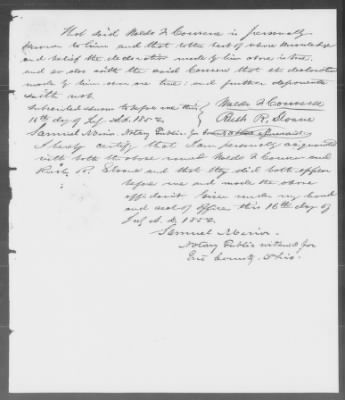 That said Waldo F. Converse is personally
known to him and that to the best of above knowledge
and belief the declaration made by him above is true
and so also with the said Converse that all declarations
made by him as are true and further deponents
saith not.
Subscribed & sworn to before me this Waldo F Converse
16th day of July A.D. 1852 Rush R. Sloane
Samuel Minor, Notary Public for
I hereby certify that I am personally acquainted
with both the above named Waldo F. Converse and
Rush R. Sloane and that they did both appear
before me and made the above
affidavit Given under my hand
and seal of office this 16th day of
July A.D. 1852.
Samuel Minor
Notary Public within & for
Erie County, Ohio.